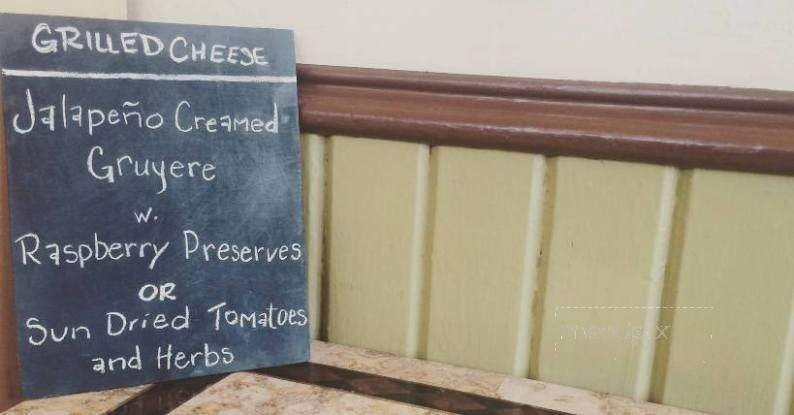 GRILLED CHEESE
Jalapeño Creamed
Gruyere
w.
Raspberry Preserves
OR
Sun Dried Tomatoes
and Herbs